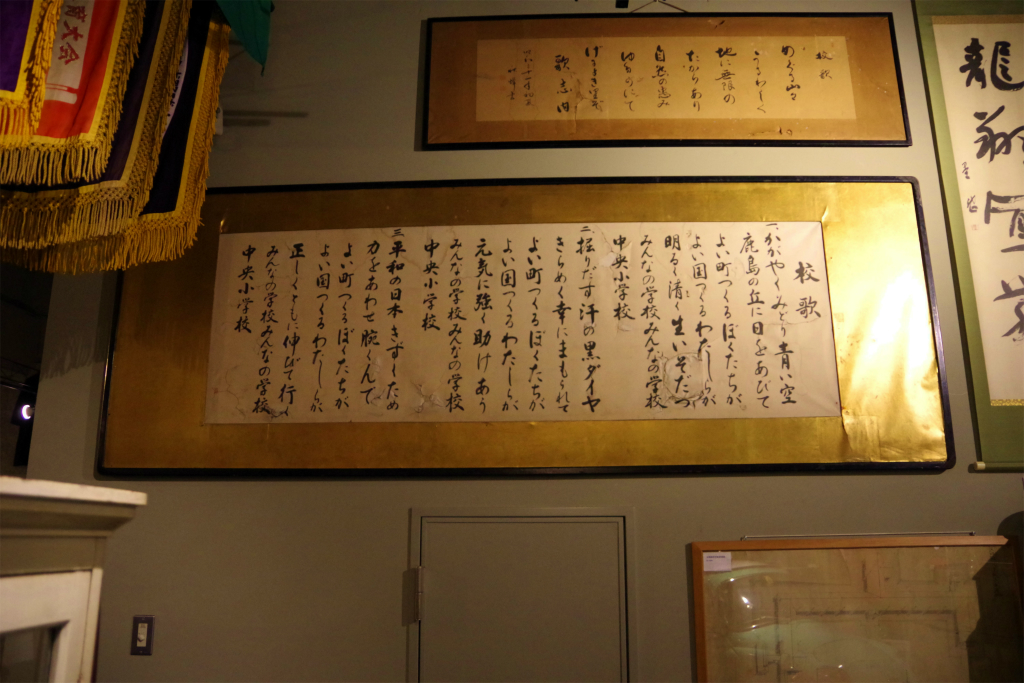 校歌
めぐる山々
うるわしく
地に無限の
たからあり
自然の恵み
ゆたかにて
歌志内
校歌
一、かがやくみどり青い空
鹿島の丘に日をあびて
よい町つくるぼくたちが
よい国つくるわたしらが
明るく清く生いそだつ
みんなの学校みんなの学校
中央小学校
二、掘りだす汗の黒ダイヤ
きらめく幸にまもられて
よい町つくるぼくたちが
よい国つくるわたしらが
元気に強く助けあう
みんなの学校みんなの学校
中央小学校
三、平和の日本きずくため
力をあわせ腕くんで
よい町つくるぼくたちが
よい国つくるわたしらが
正しくともに伸びて行く
みんなの学校みんなの学校
中央小学校
大会
龍